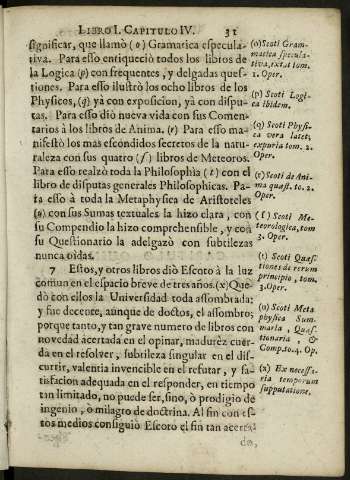 LIBRO I. CAPITULO IV. 31
significar, que llamò (o) Gramatica especula-
tiva. Para esso enriqueciò todos los libros de
la Logica (p) con frequentes, y delgadas ques-
tiones. Para esso ilustrò los ocho libros de los
Physicos, (q) yà con exposicion, yà con dispu-
tas. Para esso diò nueva vida con sus Comen-
tarios à los libros de Anima. (r) Para esso ma-
nifestò los mas escondidos secretos de la natu-
raleza con sus quatro (s) libros de Meteoros.
Para esso realzò toda la Philosophia (t) con el
libro de disputas generales Philosophicas. Pa-
ra esso à toda la Metaphysica de Aristoteles
(u) con sus Sumas textuales la hizo clara, con
su Compendio la hizo comprehensible, y con
su Questionario la adelgazò con subtilezas
nunca oìdas.
7 Estos, y otros libros diò Escoto à la luz
comun en el espacio breve de tres años. (x) Que-
dò con ellos la Universidad toda assombrada;
y fue decente, aunque de doctos, el assombro;
porque tanto, y tan grave numero de libros con
novedad acertada en el opinar, madurèz cuer-
da en el resolver, subtileza singular en el dis-
currir, valentia invencible en el refutar, y sa-
tisfacion adequada en el responder, en tiempo
tan limitado, no puede ser, sino, ò prodigio de
ingenio, ò milagro de doctrina. Al fin con es-
tos medios consiguiò Escoto el fin tan acerta-
do,
(o) Scoti Gram-
matica specula-
tiva, extat tom.
1. Oper.
(p) Scoti Logi-
ca ibidem.
(q) Scoti Physi-
ca vera latet,
expuria tom. 2.
Oper.
(r) Scoti de Ani-
ma quæst. to. 2.
Oper.
(s) Scoti Me-
teorologica, tom
3. Oper.
(t) Scoti Quæs-
tiones de rerum
principio, tom.
3. Oper.
(u) Scoti Meta
physica Sum-
maria, Quæs-
tionaria, &
Comp. to. 4. Op.
(x) Ex necessa-
ria temporum
supputatione.